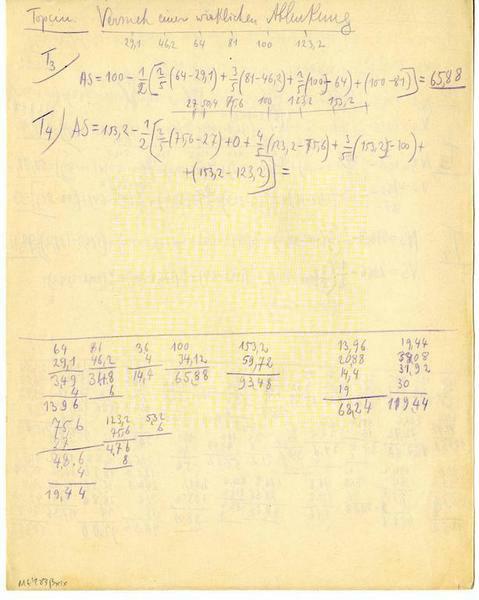 Versuch einer wirklichen Ablenkung
29,1 46,2 64 81 100 123,2
T3)
AS = 100 - 1/2 [2/5 (64 - 29,1) + 3/5 (81 - 46,2) + 2/5 (100 - 64) + (100 - 81)] = 65,88
27 50,4 75,6 100 123,2 153,2
T4) AS = 153,2 - 1/2 [2/5 (75,6 - 27) + 0 + 4/5 (123,2 - 75,6) + 3/5 (153,2 - 100) +
+ (153,2 - 123,2)] =
64 81 36 100 153,2 13,96 19,44
29,1 46,2 4 34,12 59,72 20,88 38,08
349 34,8 14,4 65,88 93,48 14,4 31,92
4 6 19 30
1396 68,24 119,44
75,6 123,2 53,2
27 75,6 6
48,6 47,6
4 8
19,44